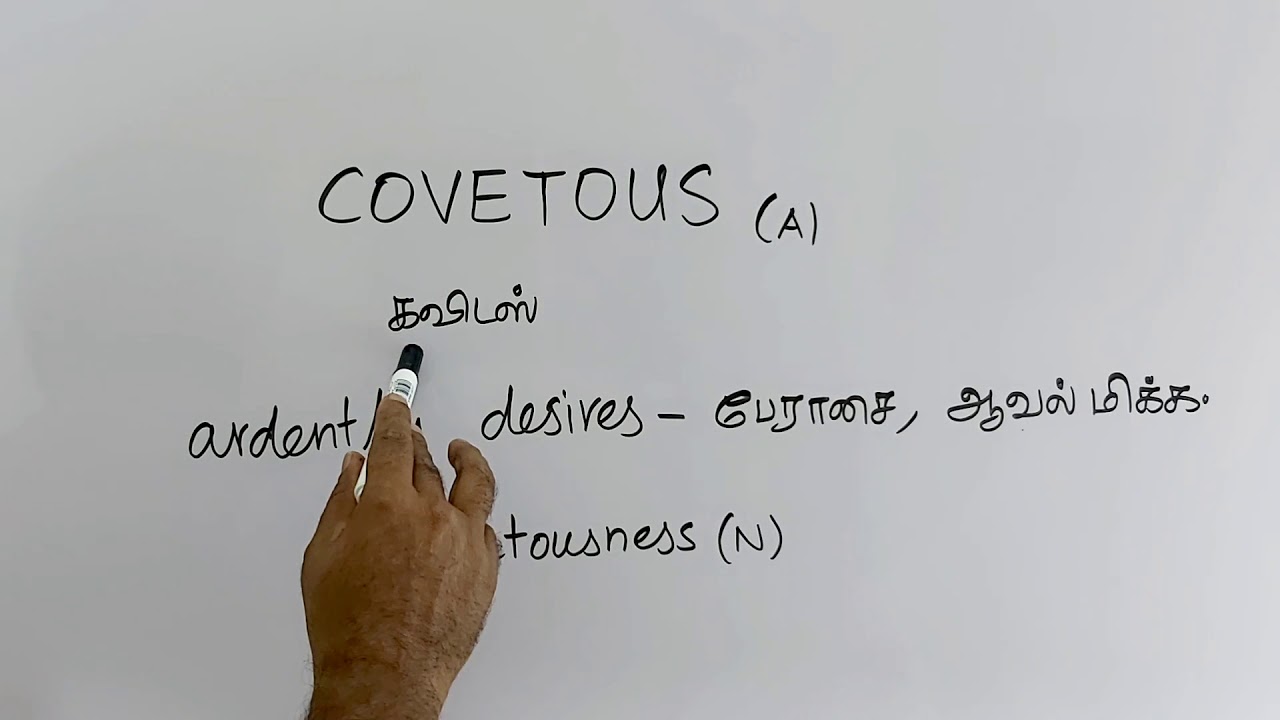 COVETOUS (A)
கவிடஸ்
ardent desires - பேராசை, ஆவல் மிக்க.
tousness (N)